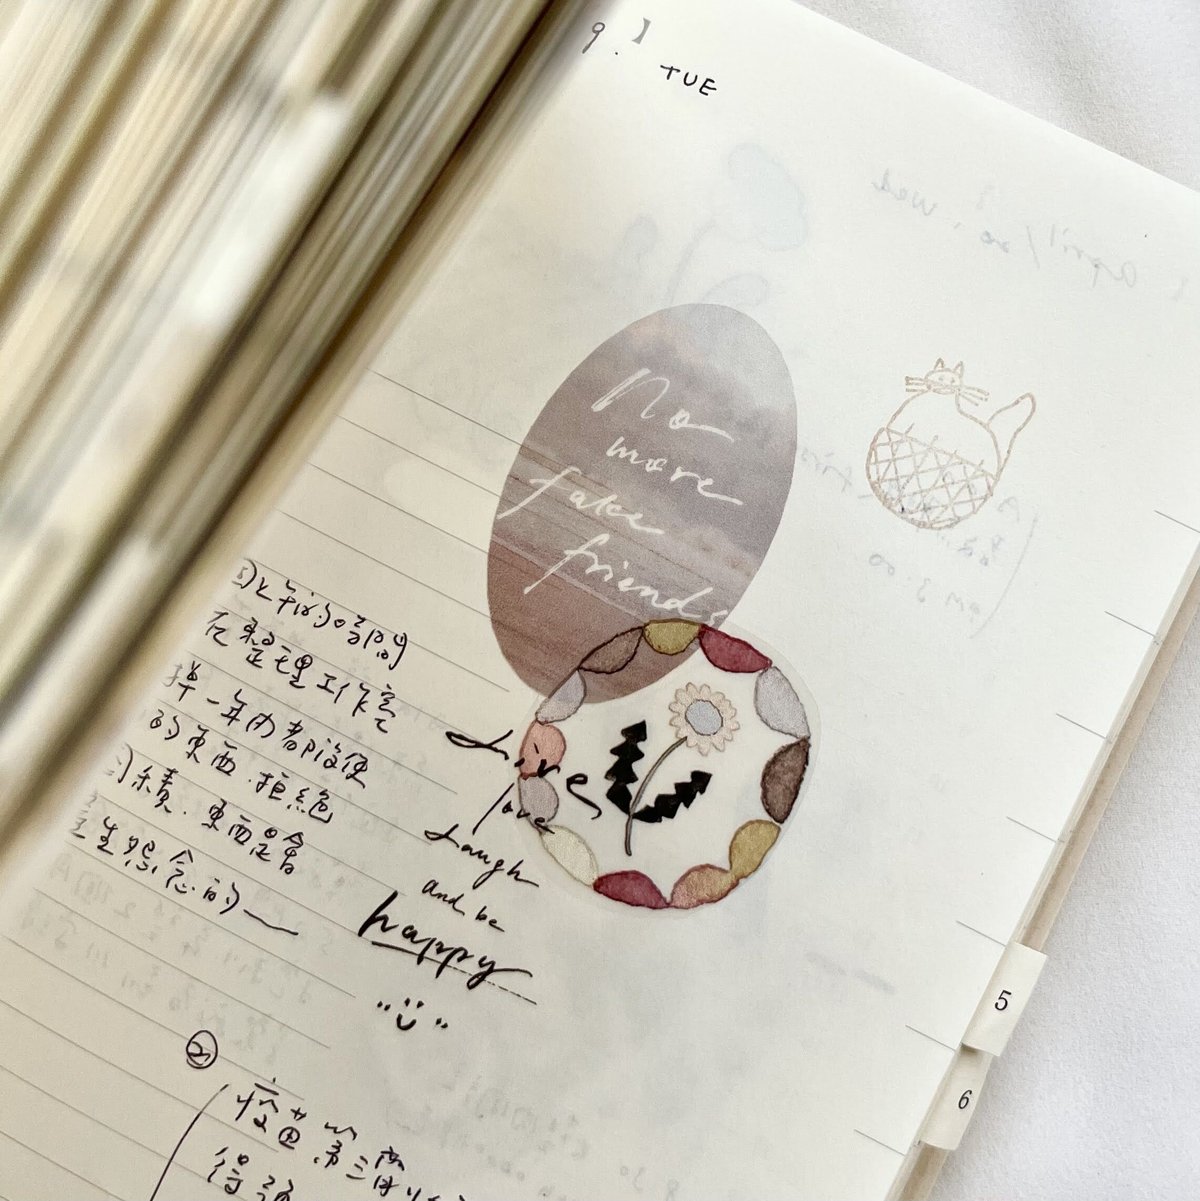 9.
TUE
No
more
fake
friends
在整理工作室
掉一年內都沒使
的東西.拒絕
積.東西是會
生怨念的
Live
love
Laugh
and be
happy
②
疫苗第三劑
5
6